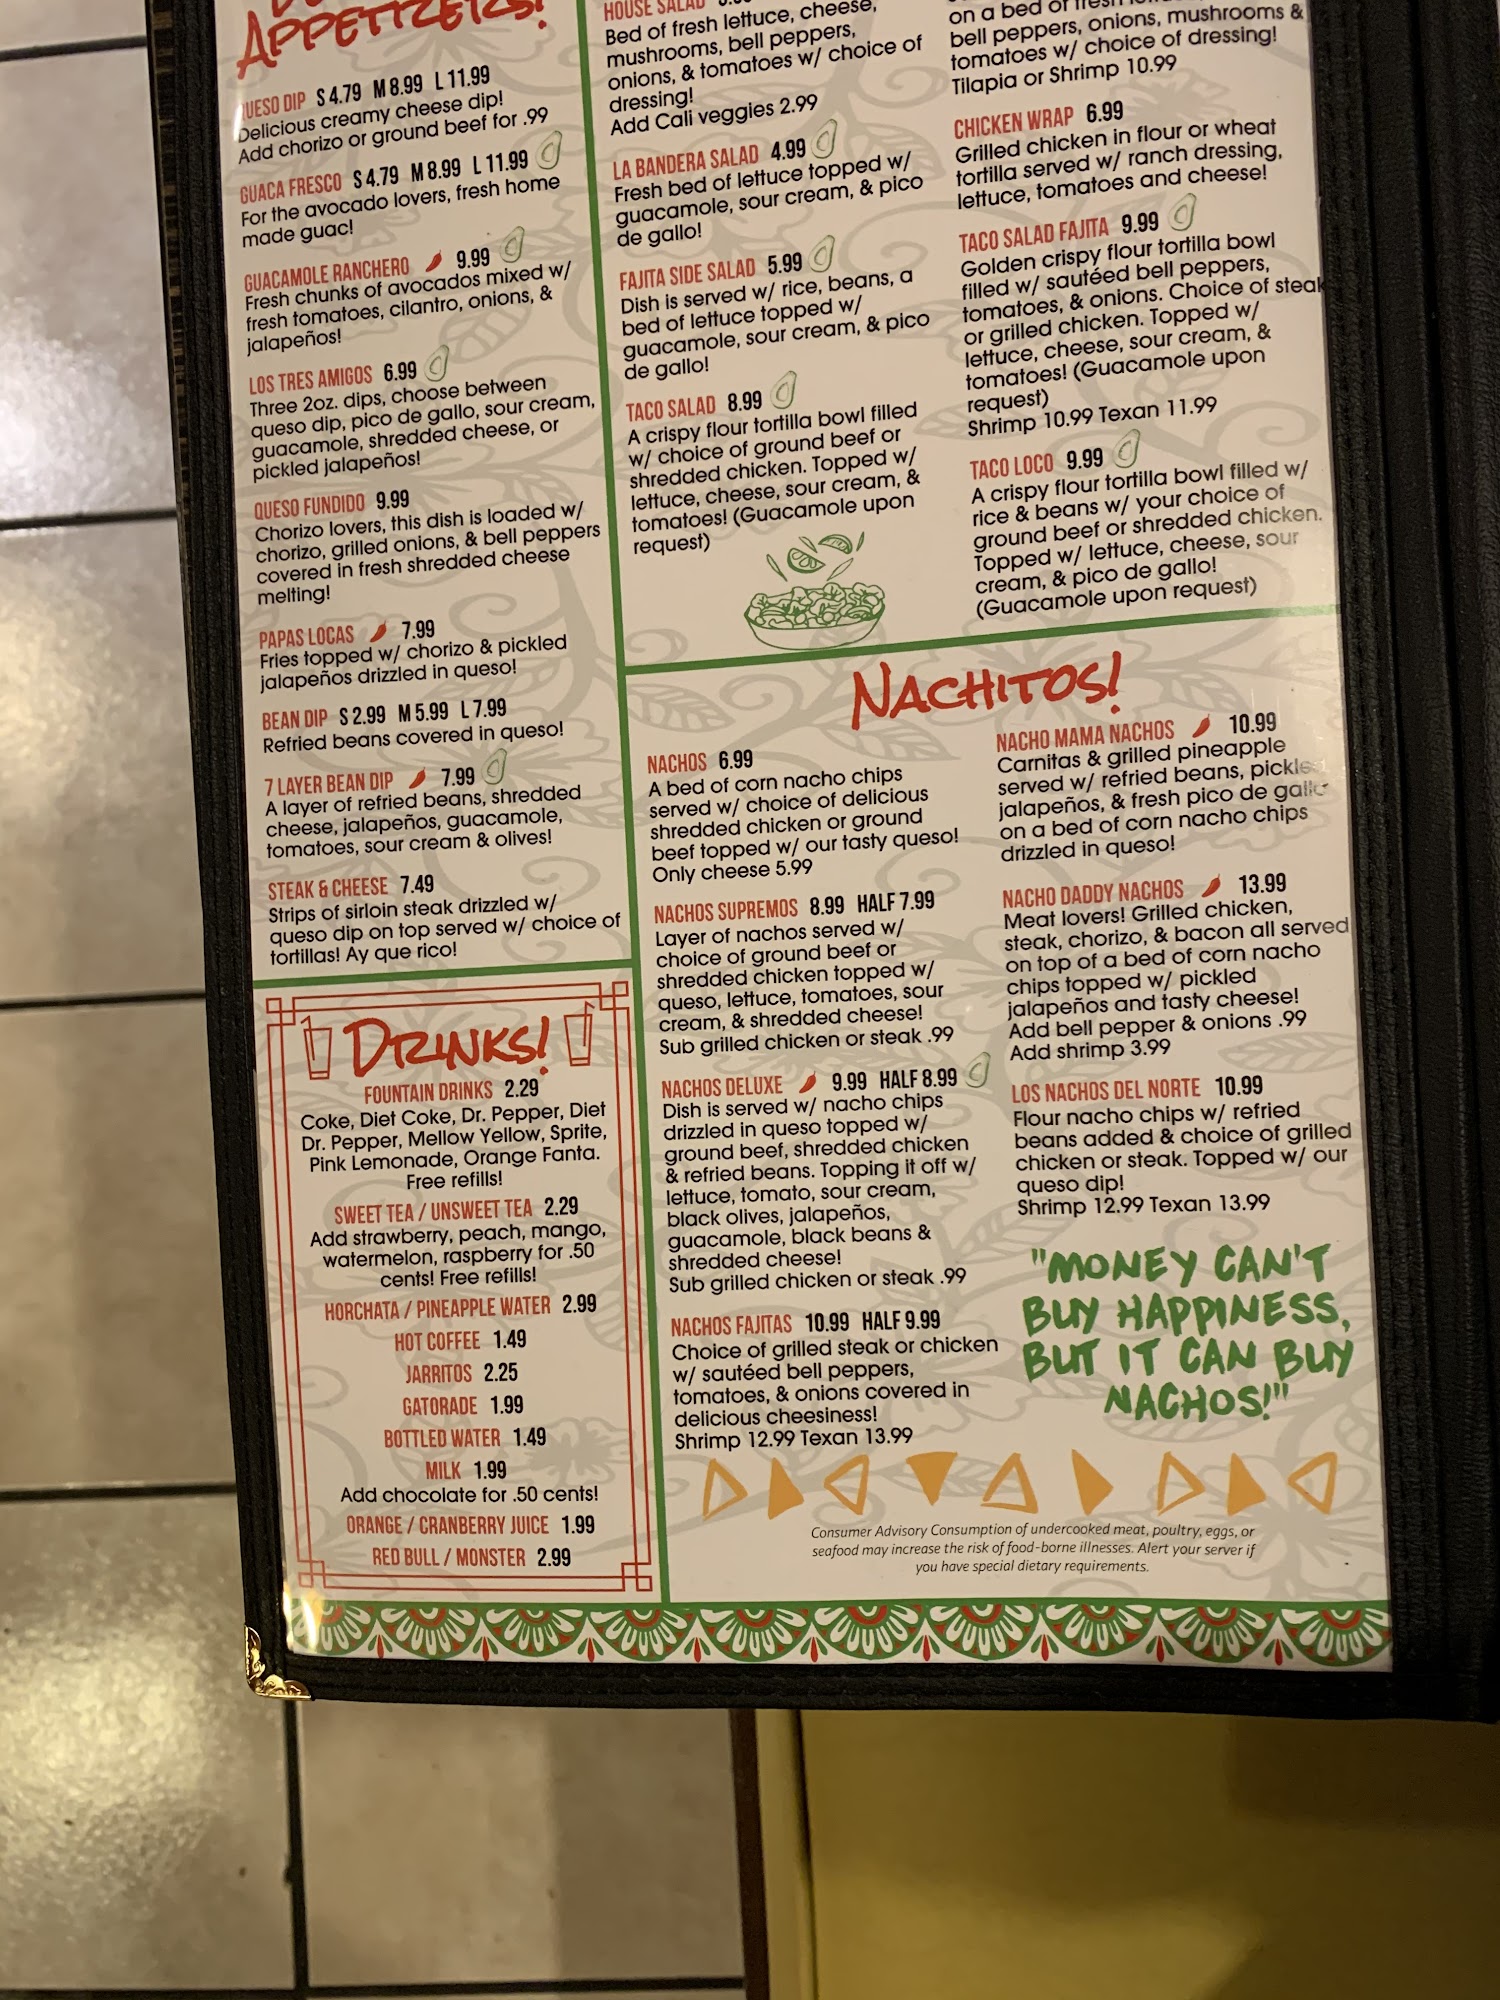 APPETIZERS!
QUESO DIP S 4.79 M 8.99 L 11.99
Delicious creamy cheese dip!
Add chorizo or ground beef for .99
GUACA FRESCO S 4.79 M 8.99 L 11.99
For the avocado lovers, fresh home
made guac!
GUACAMOLE RANCHERO 9.99
Fresh chunks of avocados mixed w/
fresh tomatoes, cilantro, onions, &
jalapeños!
LOS TRES AMIGOS 6.99
Three 2oz. dips, choose between
queso dip, pico de gallo, sour cream,
guacamole, shredded cheese, or
pickled jalapeños!
QUESO FUNDIDO 9.99
Chorizo lovers, this dish is loaded w/
chorizo, grilled onions, & bell peppers
covered in fresh shredded cheese
melting!
PAPAS LOCAS 7.99
Fries topped w/ chorizo & pickled
jalapeños drizzled in queso!
BEAN DIP S 2.99 M 5.99 L 7.99
Refried beans covered in queso!
7 LAYER BEAN DIP 7.99
A layer of refried beans, shredded
cheese, jalapeños, guacamole,
tomatoes, sour cream & olives!
STEAK & CHEESE 7.49
Strips of sirloin steak drizzled w/
queso dip on top served w/ choice of
tortillas! Ay que rico!
DRINKS!
FOUNTAIN DRINKS 2.29
Coke, Diet Coke, Dr. Pepper, Diet
Dr. Pepper, Mellow Yellow, Sprite,
Pink Lemonade, Orange Fanta.
Free refills!
SWEET TEA / UNSWEET TEA 2.29
Add strawberry, peach, mango,
watermelon, raspberry for .50
cents! Free refills!
HORCHATA / PINEAPPLE WATER 2.99
HOT COFFEE 1.49
JARRITOS 2.25
GATORADE 1.99
BOTTLED WATER 1.49
MILK 1.99
Add chocolate for .50 cents!
ORANGE / CRANBERRY JUICE 1.99
RED BULL / MONSTER 2.99
HOUSE SALAD
Bed of fresh lettuce, cheese,
mushrooms, bell peppers,
onions, & tomatoes w/ choice of
dressing!
Add Cali veggies 2.99
LA BANDERA SALAD 4.99
Fresh bed of lettuce topped w/
guacamole, sour cream, & pico
de gallo!
FAJITA SIDE SALAD 5.99
Dish is served w/ rice, beans, a
bed of lettuce topped w/
guacamole, sour cream, & pico
de gallo!
TACO SALAD 8.99
A crispy flour tortilla bowl filled
w/ choice of ground beef or
shredded chicken. Topped w/
lettuce, cheese, sour cream, &
tomatoes! (Guacamole upon
request)
on a bed of fresh
bell peppers, onions, mushrooms &
tomatoes w/ choice of dressing!
Tilapia or Shrimp 10.99
CHICKEN WRAP 6.99
Grilled chicken in flour or wheat
tortilla served w/ ranch dressing,
lettuce, tomatoes and cheese!
TACO SALAD FAJITA 9.99
Golden crispy flour tortilla bowl
filled w/ sautéed bell peppers,
tomatoes, & onions. Choice of steak
or grilled chicken. Topped w/
lettuce, cheese, sour cream, &
tomatoes! (Guacamole upon
request)
Shrimp 10.99 Texan 11.99
TACO LOCO 9.99
A crispy flour tortilla bowl filled w/
rice & beans w/ your choice of
ground beef or shredded chicken.
Topped w/ lettuce, cheese, sour
cream, & pico de gallo!
(Guacamole upon request)
NACHITOS!
NACHOS 6.99
A bed of corn nacho chips
served w/ choice of delicious
shredded chicken or ground
beef topped w/ our tasty queso!
Only cheese 5.99
NACHOS SUPREMOS 8.99 HALF 7.99
Layer of nachos served w/
choice of ground beef or
shredded chicken topped w/
queso, lettuce, tomatoes, sour
cream, & shredded cheese!
Sub grilled chicken or steak .99
NACHOS DELUXE 9.99 HALF 8.99
Dish is served w/ nacho chips
drizzled in queso topped w/
ground beef, shredded chicken
& refried beans. Topping it off w/
lettuce, tomato, sour cream,
black olives, jalapeños,
guacamole, black beans &
shredded cheese!
Sub grilled chicken or steak .99
NACHOS FAJITAS 10.99 HALF 9.99
Choice of grilled steak or chicken
w/ sautéed bell peppers,
tomatoes, & onions covered in
delicious cheesiness!
Shrimp 12.99 Texan 13.99
NACHO MAMA NACHOS 10.99
Carnitas & grilled pineapple
served w/ refried beans, pickled
jalapeños, & fresh pico de gallo
on a bed of corn nacho chips
drizzled in queso!
NACHO DADDY NACHOS 13.99
Meat lovers! Grilled chicken,
steak, chorizo, & bacon all served
on top of a bed of corn nacho
chips topped w/ pickled
jalapeños and tasty cheese!
Add bell pepper & onions .99
Add shrimp 3.99
LOS NACHOS DEL NORTE 10.99
Flour nacho chips w/ refried
beans added & choice of grilled
chicken or steak. Topped w/ our
queso dip!
Shrimp 12.99 Texan 13.99
"MONEY CAN'T
BUY HAPPINESS,
BUT IT CAN BUY
NACHOS!"
Consumer Advisory Consumption of undercooked meat, poultry, eggs, or
seafood may increase the risk of food-borne illnesses. Alert your server if
you have special dietary requirements.